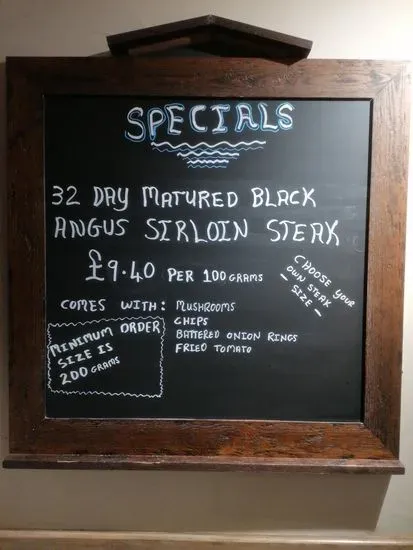 SPECIALS
32 DAY MATURED BLACK
ANGUS SIRLOIN STEAK
£9.40 PER 100 GRAMS
CHOOSE YOUR
OWN STEAK
- SIZE -
COMES WITH: MUSHROOMS
CHIPS
BATTERED ONION RINGS
FRIED TOMATO
MINIMUM ORDER
SIZE IS
200 GRAMS